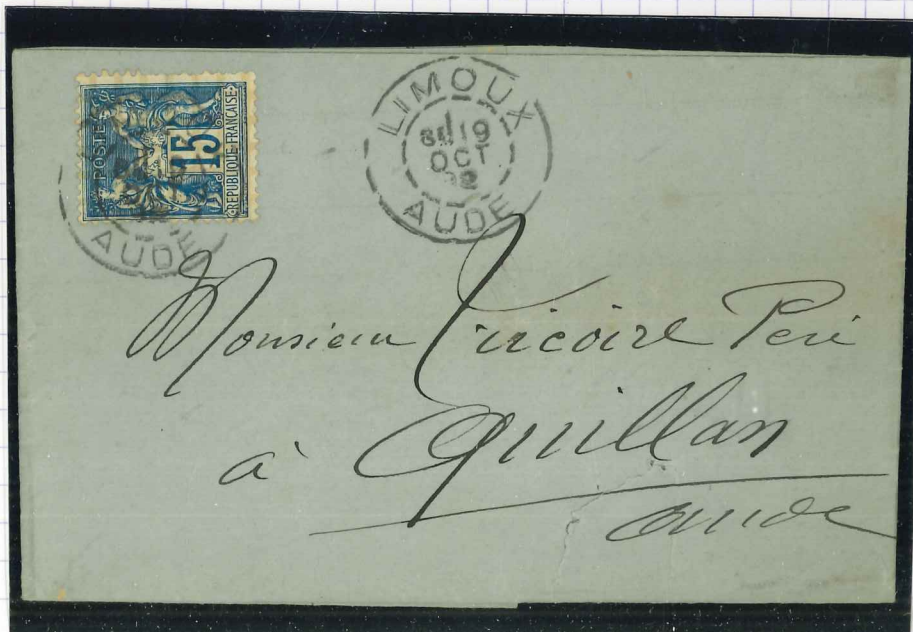 POSTE
15
REPUBLIQUE FRANÇAISE
AUDE
LIMOUX
19
OCT
92
AUDE
Monsieur Tricoire Peré
à Quillan
Aude